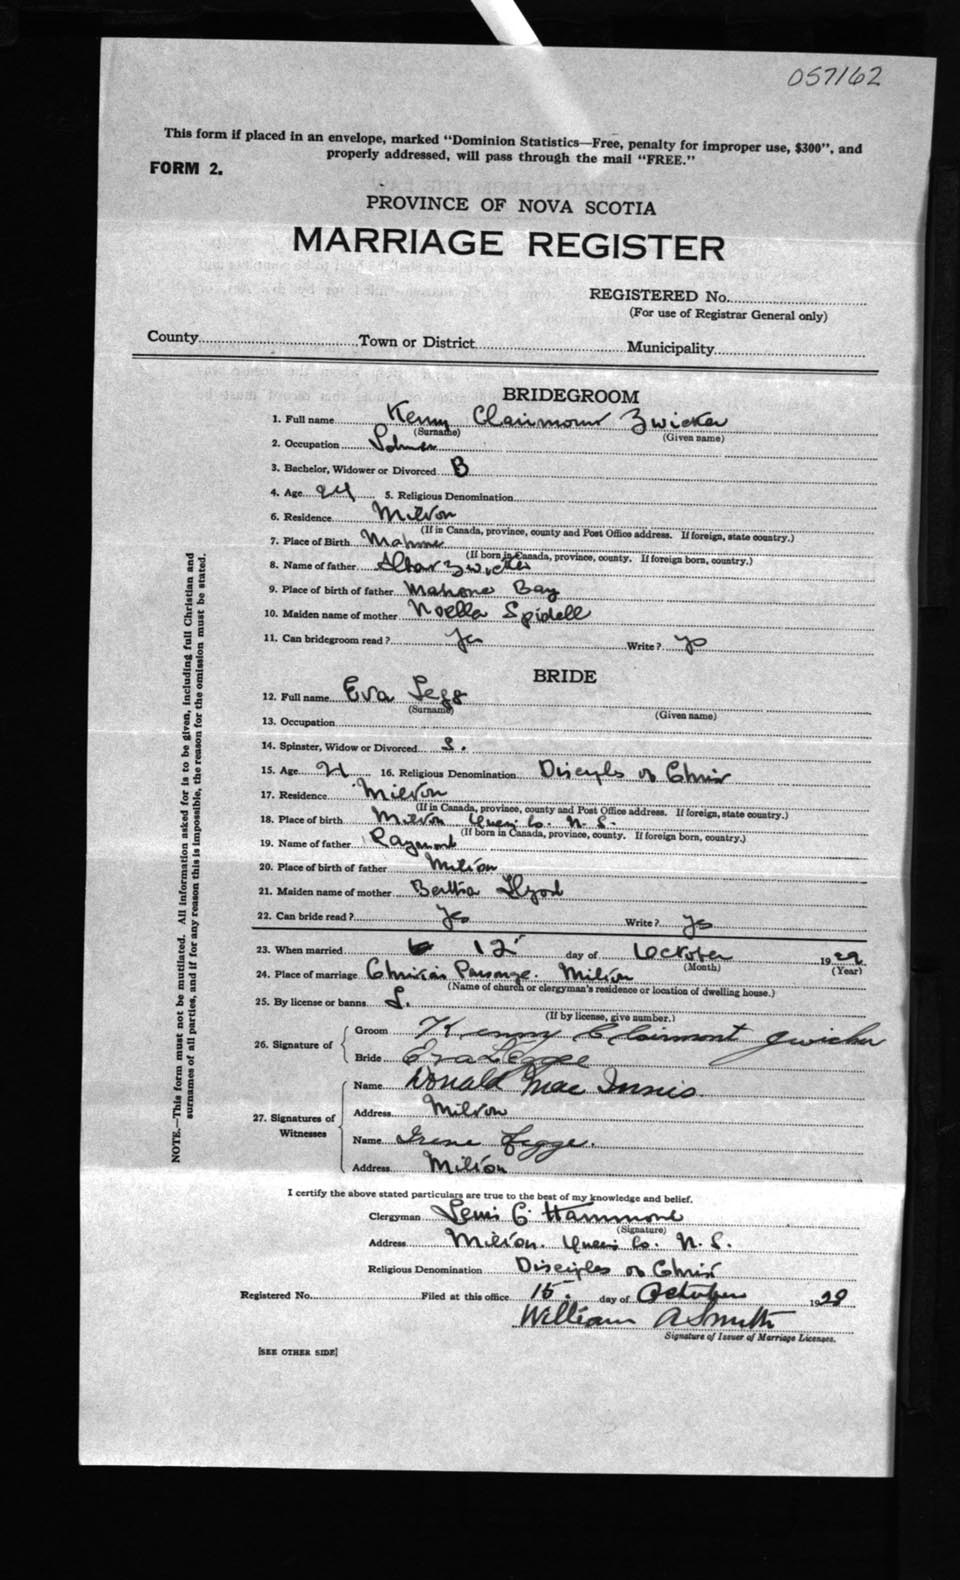 057162
This form if placed in an envelope, marked "Dominion Statistics—Free, penalty for improper use, $300", and
properly addressed, will pass through the mail "FREE."
FORM 2.
PROVINCE OF NOVA SCOTIA
MARRIAGE REGISTER
REGISTERED No.
(For use of Registrar General only)
County Town or District Municipality
BRIDEGROOM
1. Full name Kenny Clairmount Zwicker
(Surname) (Given name)
2. Occupation
3. Bachelor, Widower or Divorced B
4. Age 24 5. Religious Denomination
6. Residence Milton
(If in Canada, province, county and Post Office address. If foreign, state country.)
7. Place of Birth Mahone
(If born in Canada, province, county. If foreign born, country.)
8. Name of father Zwicker
9. Place of birth of father Mahone Bay
10. Maiden name of mother Noella Spidell
11. Can bridegroom read? Yes Write? Yes
BRIDE
12. Full name Eva Legg
(Surname) (Given name)
13. Occupation
14. Spinster, Widow or Divorced S.
15. Age 21 16. Religious Denomination Disciples of Christ
17. Residence Milton
(If in Canada, province, county and Post Office address. If foreign, state country.)
18. Place of birth Milton Queens Co. N. S.
(If born in Canada, province, county. If foreign born, country.)
19. Name of father Raymond
20. Place of birth of father Milton
21. Maiden name of mother Bertha
22. Can bride read? Yes Write? Yes
23. When married 12 day of October 1929
(Month) (Year)
24. Place of marriage Christian Parsonage. Milton
(Name of church or clergyman's residence or location of dwelling house.)
25. By license or banns L.
(If by license, give number.)
26. Signature of
Groom Kenny Clairmont Zwicker
Bride Eva Leggee
27. Signatures of Witnesses
Name Donald Mac Innis
Address Milton
Name Irene Legge.
Address Milton
I certify the above stated particulars are true to the best of my knowledge and belief.
Clergyman G. Hammond
(Signature)
Address Milton. Queens Co. N. S.
Religious Denomination Disciples of Christ
Registered No. Filed at this office 15. day of October 1929
William A Smith
Signature of Issuer of Marriage Licenses.
[SEE OTHER SIDE]
NOTE.—This form must not be mutilated. All information asked for is to be given, including full Christian and
surnames of all parties, and if for any reason this is impossible, the reason for the omission must be stated.